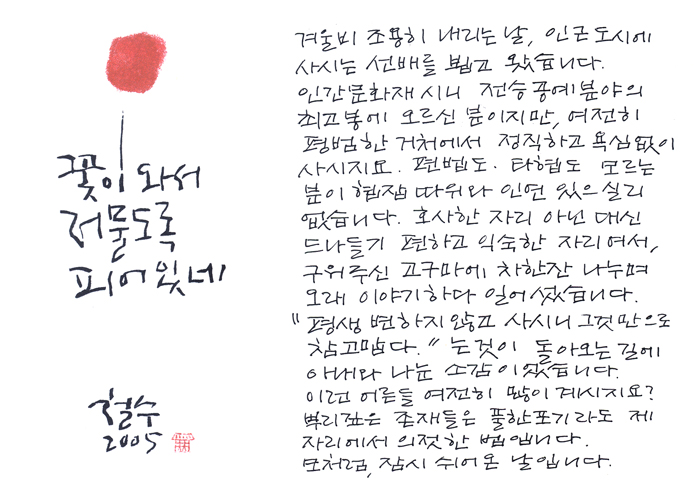 꽃이 와서
저물도록
피어있네
철수
2005
겨울비 조용히 내리는 날, 인근 도시에
사시는 선배를 뵙고 왔습니다.
인간문화재시니 전승공예분야의
최고봉에 오르신 분이지만, 여전히
평범한 거처에서 정직하고 욕심없이
사시지요. 편법도. 타협도 모르는
분이 협잡 따위와 인연 있으실리
없습니다. 호사한 자리 아닌 대신
드나들기 편하고 익숙한 자리여서,
구워주신 고구마에 차한잔 나누며
오래 이야기하다 일어섰습니다.
"평생 변하지 않고 사시니 그것만으로
참고맙다." 는것이 돌아오는 길에
아내와 나눈 소감이었습니다.
이런 어른들 여전히 많이 계시지요?
뿌리깊은 존재들은 풀한포기라도 제
자리에서 의젓한 법입니다.
모처럼, 잠시 쉬어 온 날입니다.